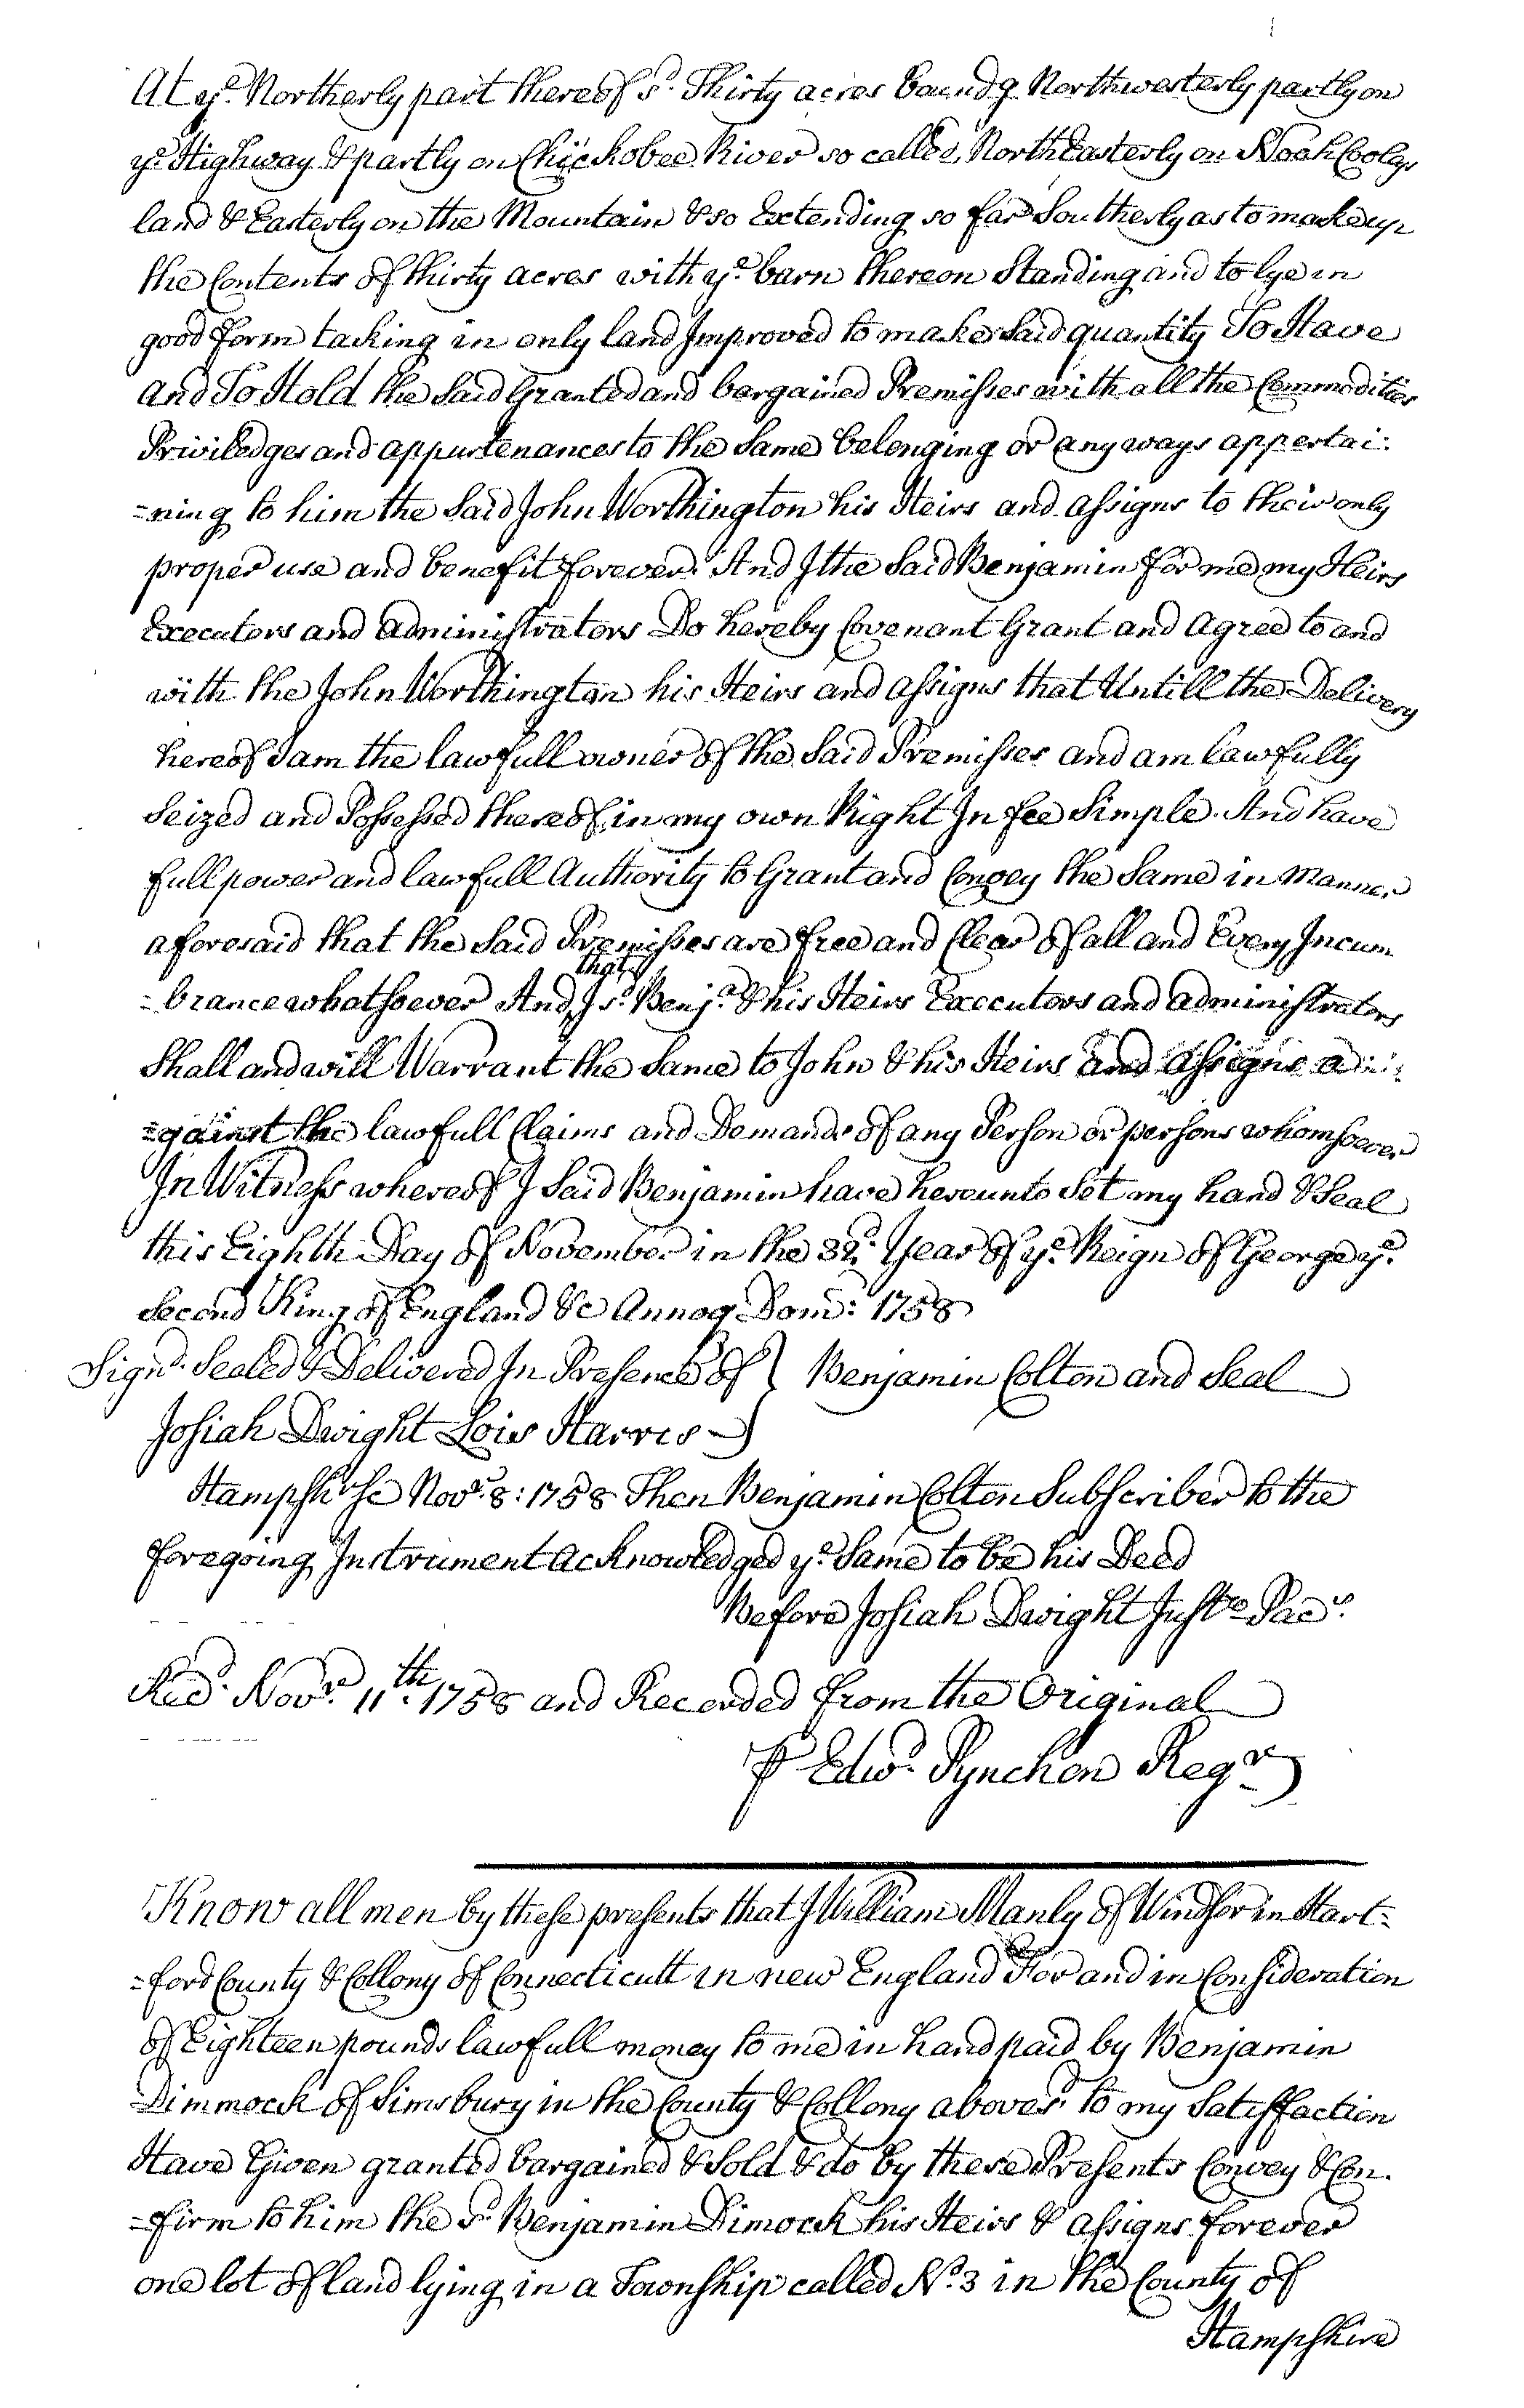 At yᵉ Northerly part thereof sᵈ Thirty acres boundg Northwesterly partly on
yᵉ Highway & partly on Chickobee River so called, NorthEasterly on Noah Cooleys
land & Easterly on the Mountain & so Extending so far Southerly as to make up
the Contents of thirty acres with yᵉ barn thereon Standing and to lye in
good form tacking in only land Improved to make Said quantity To Have
and To Hold the Said Granted and bargained Premisses with all the Commodities
Priviledges and appurtenances to the Same belonging or any ways appertai-
=ning to him the Said John Worthington his Heirs and assigns to their only
proper use and benefit forever. And I the Said Benjamin for me my Heirs
Executors and administrators Do hereby Covenant Grant and agree to and
with the John Worthington his Heirs and assigns that Untill the Delivery
hereof I am the lawfull owner of the Said Premisses and am lawfully
Seized and Possessed thereof in my own Right In fee Simple. And have
full power and lawfull Authority to Grant and Convey the Same in Manner
aforesaid that the Said Premisses are free and Clear of all and Every Incum
=brance whatsoever And that I sᵈ Benjᵃ & his Heirs Executors and administrators
Shall and will Warrant the Same to John & his Heirs and assigns a
=gainst the lawfull Claims and Demands of any Person or persons whomsoever
In Witness whereof I Said Benjamin have hereunto Set my hand & Seal
this Eighth Day of November in the 32ᵈ Year of yᵉ Reign of George yᵉ
Second King of England &c Annoq Dom: 1758
Signᵈ Sealed & Delivered In Presence of } Benjamin Colton and Seal
Josiah Dwight Lois Harris
Hampsh sc Novʳ 8: 1758 Then Benjamin Colton Subscriber to the
foregoing Instrument acknowledged yᵉ Same to be his Deed
Before Josiah Dwight Justᶜᵉ Pacˢ
Recᵈ Novʳ 11th 1758 and Recorded from the Original
⅌ Edwᵈ Pynchon Regʳ
Know all men by these presents that I William Manly of Windsor in Hart-
=ford County & Collony of Connecticutt in new England For and in Consideration
of Eighteen pounds lawfull money to me in hand paid by Benjamin
Dimmock of Simsbury in the County & Collony abovesᵈ to my Satisffaction
Have Given granted bargained & Sold & do by these Presents Convey & Con-
=firm to him the sᵈ Benjamin Dimock his Heirs & assigns forever
one lot of land lying in a Township called Nᵒ 3 in the County of
Hampshire